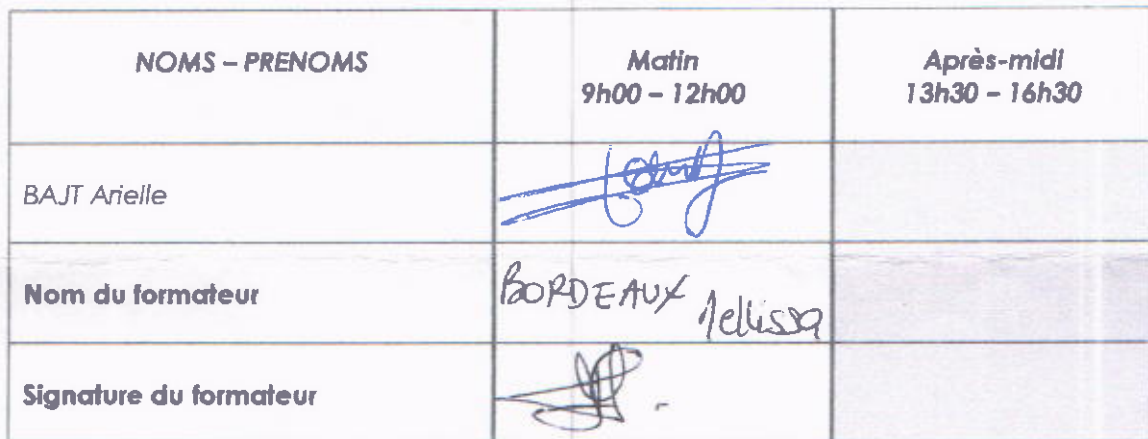 NOMS – PRENOMS
Matin
9h00 – 12h00
Après-midi
13h30 – 16h30
BAJT Arielle
Nom du formateur
BORDEAUX Mellissa
Signature du formateur